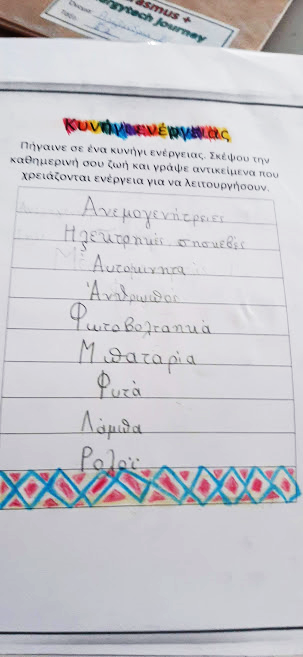 Όνομα:
Erasmus +
energytech journey
Τάξη:
Κυνήγι ενέργειας
Πήγαινε σε ένα κυνήγι ενέργειας. Σκέψου την
καθημερινή σου ζωή και γράψε αντικείμενα που
χρειάζονται ενέργεια για να λειτουργήσουν.
Ανεμογενήτριες
Ηλεκτρικές σησκεβές
Αυτοκινητα
Άνθρωπος
Φωτοβολταηκά
Μπαταρία
Φυτά
Λάμπα
Ρολόϊ